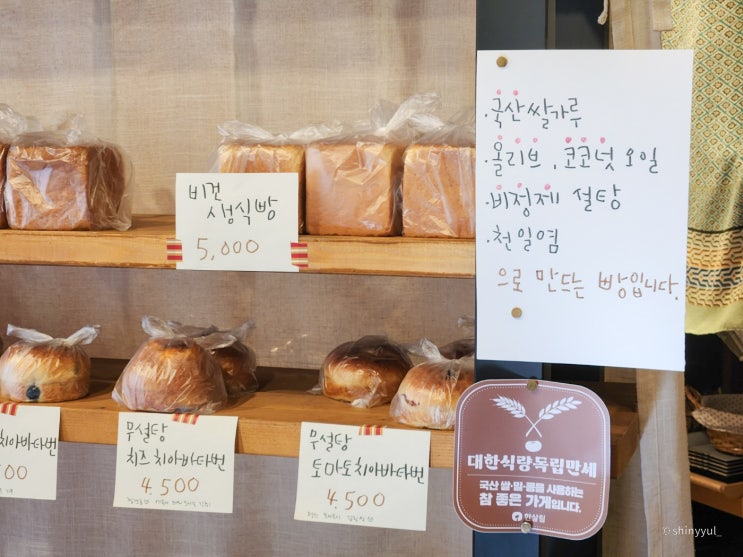 비건
생식빵
5,000
·국산쌀가루
·올리브, 코코넛오일
·비정제 설탕
·천일염
으로 만드는 빵입니다.
치아바타번
무설탕
치즈치아바타번
4.500
무설탕
토마토치아바타번
4500
대한식량독립만세
국산 쌀·밀·콩을 사용하는
참 좋은 가게입니다.
한살림
©shinyyul_